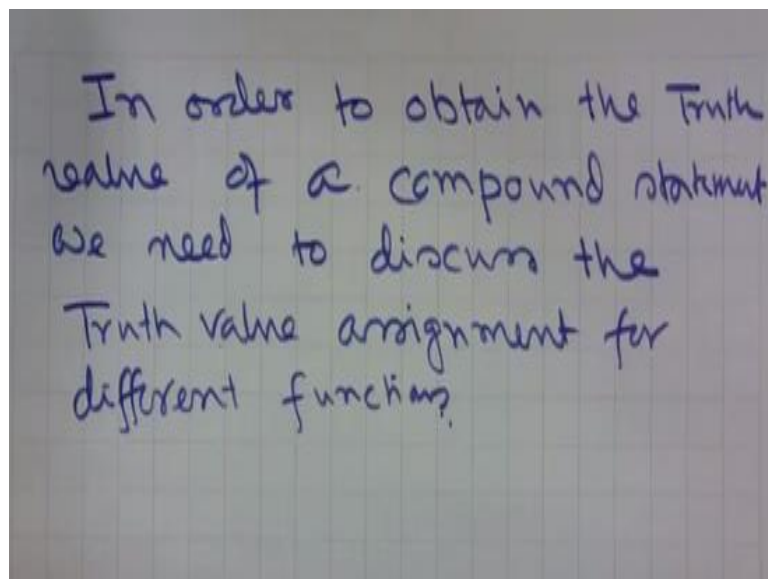 In order to obtain the Truth
value of a compound statement
we need to discuss the
Truth value assignment for
different functions.